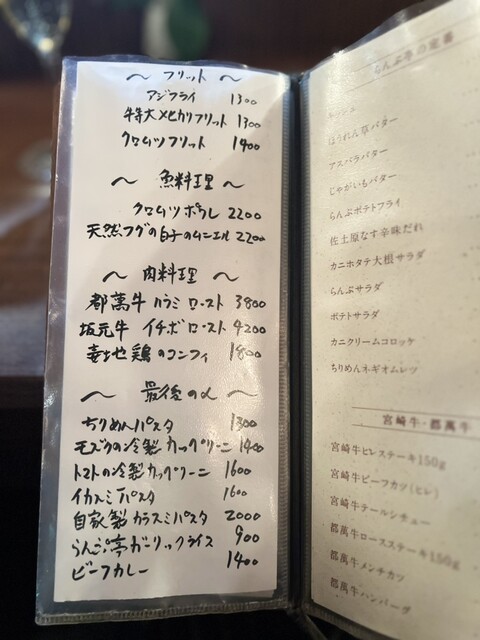 〜 フリット 〜
アジフライ 1300
特大メヒカリフリット 1300
クロムツフリット 1400
〜 魚料理 〜
クロムツポワレ 2200
天然フグの白子のムニエル 2200
〜 肉料理 〜
都萬牛 カラミロースト 3800
坂元牛 イチボロースト 4200
妻地鶏のコンフィ 1800
〜 最後の〆 〜
ちりめんパスタ 1300
モズクの冷製カッペリーニ 1400
トマトの冷製カッペリーニ 1600
イカスミパスタ 1600
自家製カラスミパスタ 2000
らんぷ亭ガーリックライス 900
ビーフカレー 1400
らんぷ亭の定番
ほうれん草バター
アスパラバター
じゃがいもバター
らんぷポテトフライ
佐土原なす辛味だれ
カニホタテ大根サラダ
らんぷサラダ
ポテトサラダ
カニクリームコロッケ
ちりめんネギオムレツ
宮崎牛・都萬牛
宮崎牛ヒレステーキ150g
宮崎牛ビーフカツ(ヒレ)
宮崎牛テールシチュー
都萬牛ロースステーキ150g
都萬牛メンチカツ
都萬牛ハンバーグ